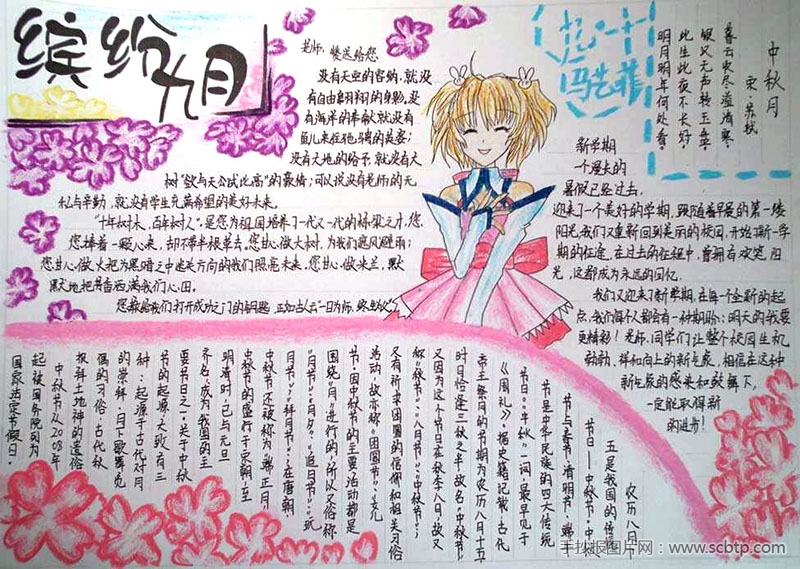 缤纷九月
老师,暖送给您
没有天空的容纳,就没
有自由翱翔的身影,没
有海洋的奉献就没有
鱼儿来往驰骋的英姿;
没有大地的给予,就没有大
树"欲与天公试比高"的豪情;可以说没有老师的无
私与辛勤,就没有学生充满希望的美好未来。
"十年树木,百年树人",是您为祖国培养了一代又一代的栋梁之才,您,
您捧着一颗心来,却不带半根草去,您甘心做大树,为我们遮风避雨;
您甘心做火把为黑暗之中迷失方向的我们照亮未来,您甘心做米兰,默
默无地把其香洒满我们心田。
您教给我们打开成功之门的钥匙,正如古人云"一日为师,终生为父"
马艺菲
中秋月
宋·苏轼
暮云收尽溢清寒,
银汉无声转玉盘。
此生此夜不长好,
明月明年何处看。
新学期
一个漫长的
暑假已经过去,
迎来了一个美好的学期,跟随着早晨的第一缕
阳光,我们又重新回到美丽的校园,开始了新一学
期的征途,在过去的征程中,曾拥有欢笑,阳
光,这都成为永远的回忆。
我们又迎来了新学期,在每一个全新的起
点,我们每个人都会有一种期盼:明天的我要
更精彩!老师,同学们让整个校园生机
勃勃,祥和向上的新气象,相信在这种
新气象的感染和鼓舞下,
一定能取得新
的进步!
农历八月十
五是我国的传统
节日——中秋节。中秋
节与春节、清明节、端午
节是中华民族的四大传统
节日。"中秋"一词,最早见于
《周礼》。据史籍记载,古代
帝王祭月的节期为农历八月十五
时日恰逢三秋之半,故名"中秋节";
又因为这个节日在秋季八月,故又
称"秋节"、"八月节"、"中秋节";
又有祈求团圆的信仰和相关习俗
活动,故亦称"团圆节"、"女儿
节"。因中秋节的主要活动都是
围绕"月"进行的,所以又俗称
"月节"、"月夕"、"追月节"、"玩
月节"、"拜月节";在唐朝,
中秋节还被称为"端正月"。
中秋节的盛行于宋朝,至
明清时,已与元旦
齐名,成为我国的主
要节日之一。关于中秋
节的起源,大致有三
种:起源于古代对月
的崇拜、月下歌舞觅
偶的习俗,古代秋
报拜土地神的遗俗
中秋节从2008年
起被国务院列为
国家法定节假日。
手抄报图片网:www.scbtp.com